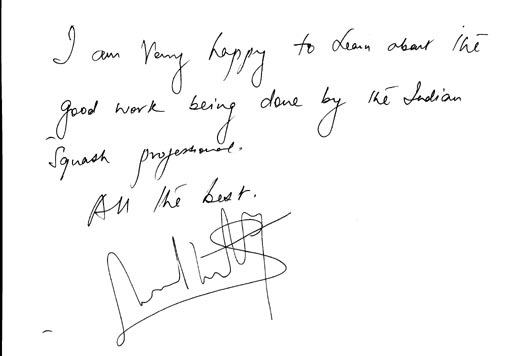 I am Very happy to Learn about the
good work being done by the Indian
Squash professional.
All the best.